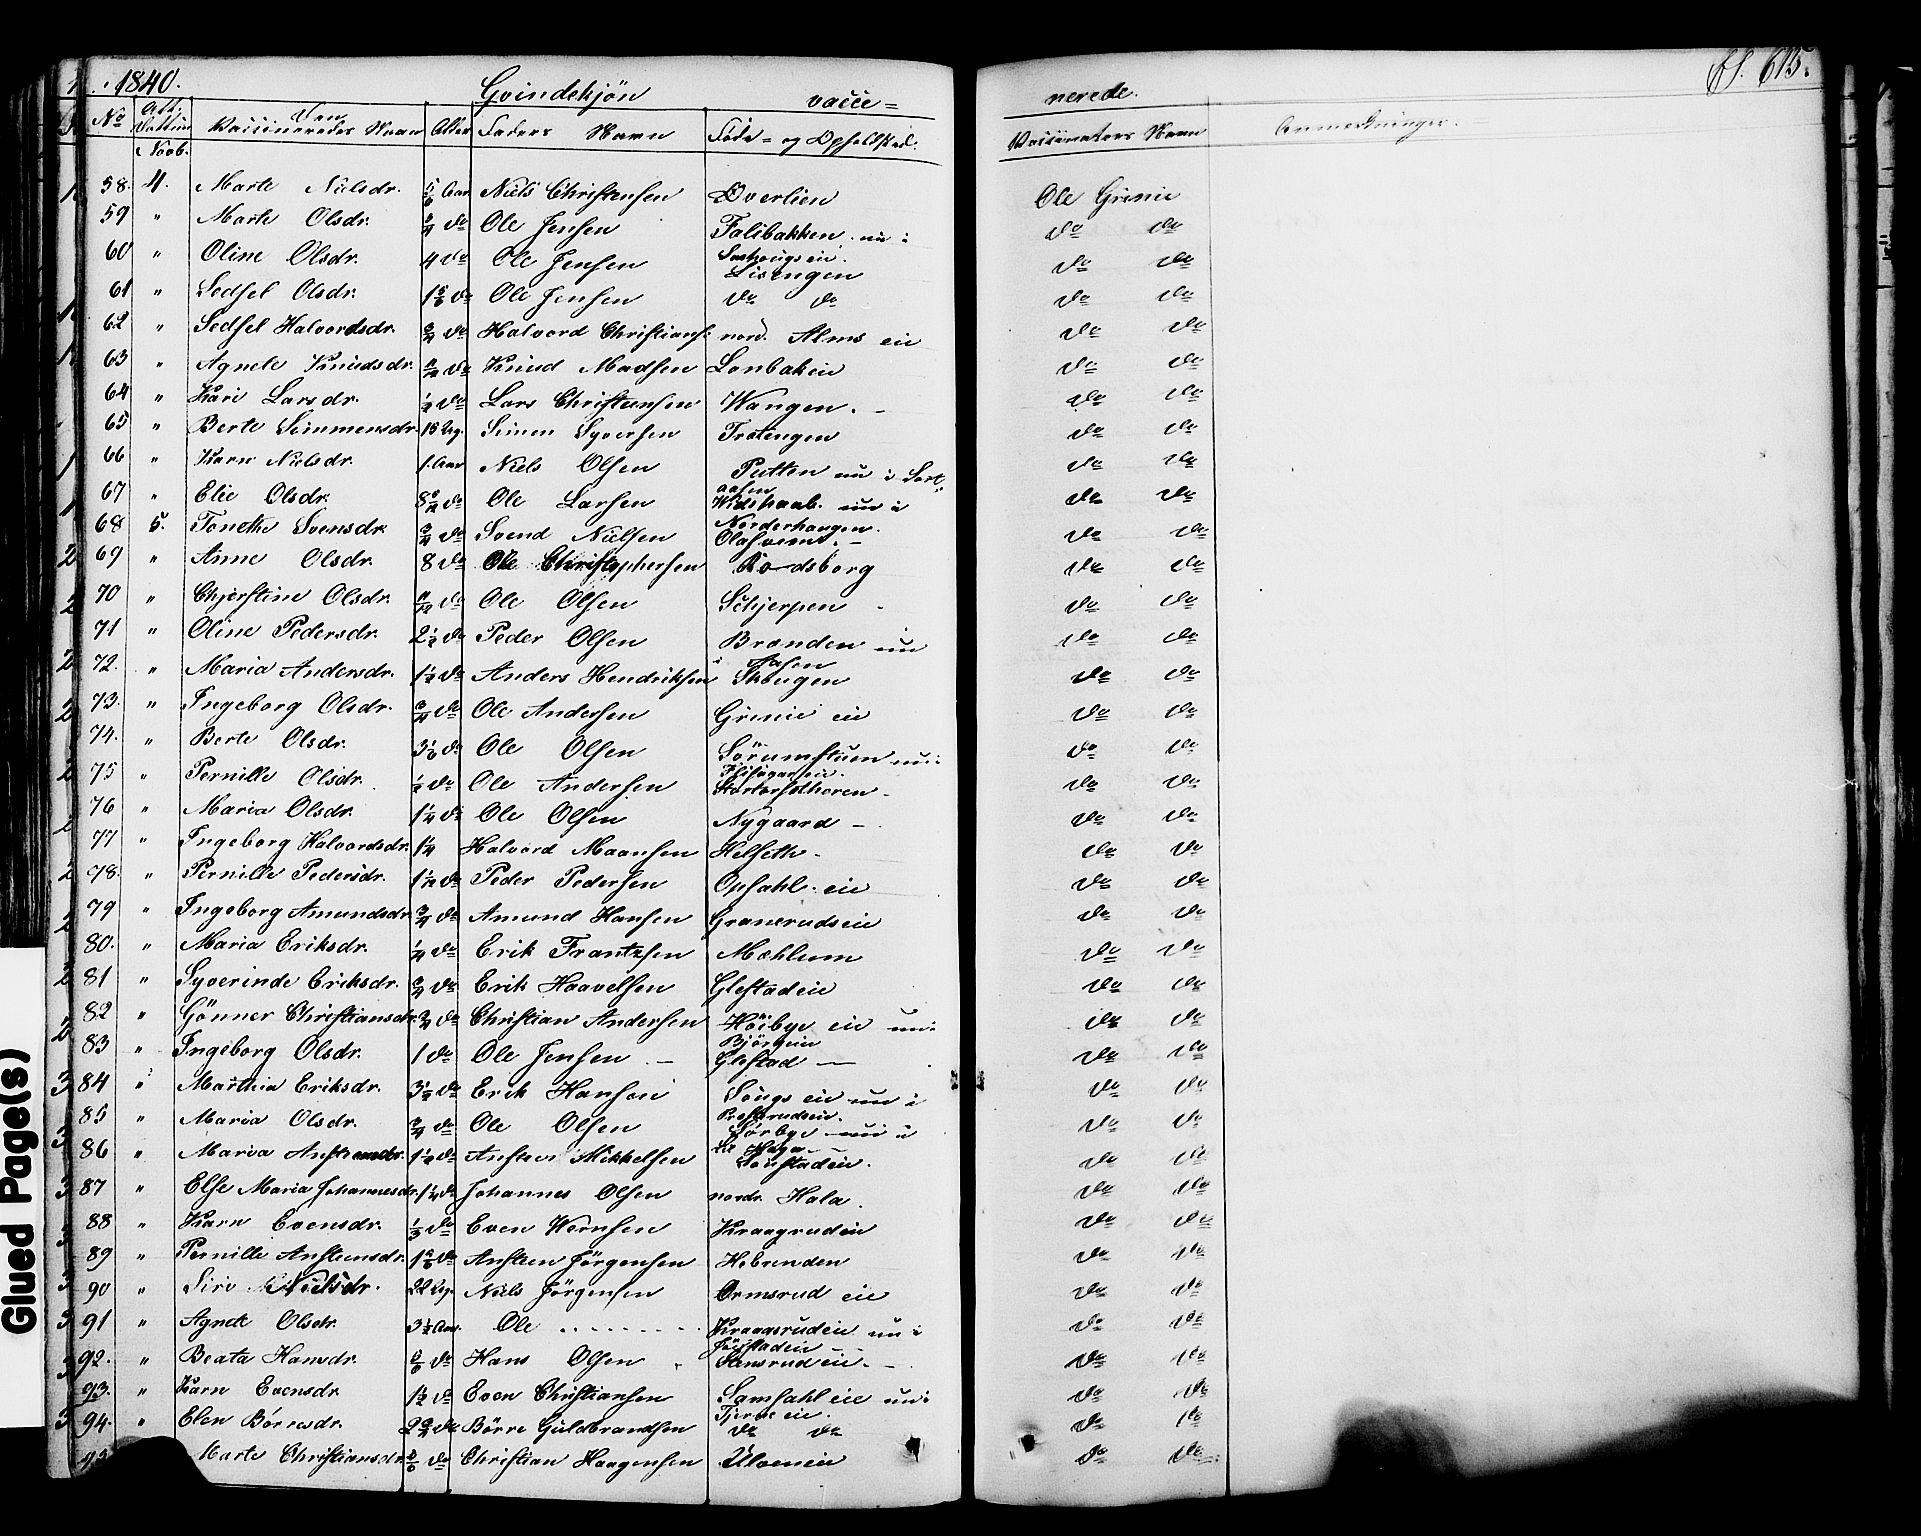 1840. Qvindekjön vacce= nerede. fl. 615.
No Att. Dattum Den Vaccineredes Navn Alder Faders Navn Föde= og Opholdsted. Vaccinators Navn Anmerkninger.
Novb.
58. 4. Marte Nielsdr. Aar Niels Christensen Overlien Ole Grinie
59 " Marte Olsdr. do Ole Jensen Falibakken nu i do do
60 " Oline Olsdr. 4 do Ole Jensen Lisengen do do
61 " Sedsel Olsdr. do Ole Jensen do do do do
62 " Sedsel Halvordsdr. do Halvord Christians: nord. Alms eie do do
63 " Agnete Knudsdr. do Knud Madsen Lonbakeie do do
64 " Kari Larsdr. do Lars Christensen Wangen. - do do
65 " Berte Simmensdr. 18 Ug. Simen Syversen Trotengen do do
66 " Karn Nielsdr. 1. Aar Niels Olsen Putten nu i Sort: do do
aasen
67 " Elie Olsdr. do Ole Larsen Widskaab. nu i do do
Norderhaugen.
68 5. Tonethe Svensdr. 3/4 do Svend Nielsen do do
69 " Anne Olsdr. 8 do Ole Christophersen Rodsborg do do
70 " Chjerstine Olsdr. do Ole Olsen Schjerpen - do do
71 " Oline Pedersdr. 2 1/2 do Peder Olsen Brænden nu do do
i Aasen
72. " Maria Andersdr. 1 1/2 do Anders Hendriksen Skougen do do
73. " Ingeborg Olsdr. 3/4 do Ole Andersen Grinie eie do do
74. " Berte Olsdr. do Ole Olsen Sörumstuen nu i do do
75 " Pernille Olsdr. do Ole Andersen do do
76 " Maria Olsdr. 1 1/4 do Ole Olsen Nygaard - do do
77 " Ingeborg Halvordsdr. 1 1/4 Halvord Maansen Helseth - do do
78. " Pernille Pedersdr. do Peder Pedersen Opsahl. eie do do
79 " Ingeborg Amundsdr. 3/4 do Amund Hansen Granerudseie do do
80. " Maria Eriksdr. 1/4 do Erik Frantzsen Mæhlum do do
81 " Syverinde Eriksdr. 3/4 do Erik Haavelsen Glestadeie do do
82 " Gönner Christiansdr. 3/4 do Christian Andersen Höibye eie nu i do do
Björgeie
83 " Ingeborg Olsdr. 1 do Ole Jensen - Glestad - do do
84 " Marthia Eriksdr. 3 1/2 do Erik Hansen Sougs eie nu i do do
Presterudseie.
85 " Maria Olsdr. 3/4 do Ole Olsen Sörbye nu i do do
lil Haga
86 " Maria Anstensdr. do Ansten Mikkelsen do do
87 " Else Maria Johannesdr. 1 1/4 do Johannes Olsen nordr. Hala. do do
88 " Karn Evensdr. 1/3 do Even Wernsen Kraagrudeie do do
89 " Pernille Anstensdr. do Ansteen Jörgensen Hebrenden do do
90 " Siri Nielsdr. 22 Ug. Niels Jörgensen Ormsrud eie do do
91 " Agnete Olsdr. 3 1/2 Aar. Ole ........ Kraagsrudeie nu i do do
92. " Beata Hansdr. do Hans Olsen Sansrudeie. - do do
93. " Karn Evensdr. 1 1/2 do Even Christiansen Samsahl eie nu i do do
Tjerne eie.
94. " Elen Börresdr. 2 3/4 do Börre Guldbrandsen do do do do
95 Marte Christiansdr. do Christian Haagensen Ulveneie do do
Glued Page(s)